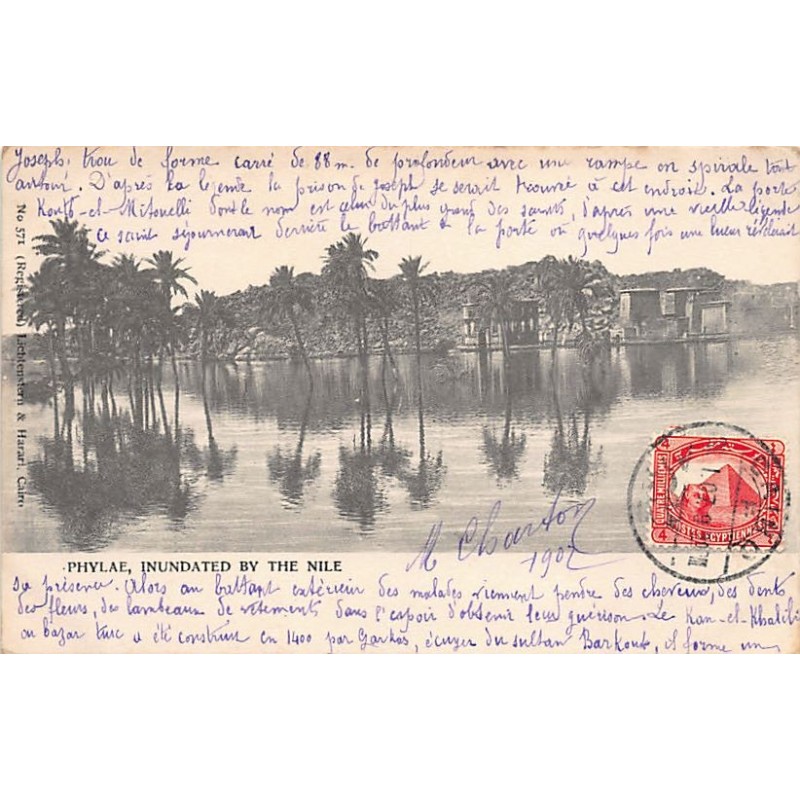 Joseph. trou de forme carré de 88 m. de profondeur avec une rampe en spirale tout
autour. D'après la légende la prison de Joseph se serait trouvée à cet endroit. La porte
Koutb-el-Mitouelli dont le nom est celui du plus grand des saints, d'après une vieille légende
ce saint séjournerait derrière le battant de la porte où quelques fois une lueur révélerait
No 571 (Registered) Lichtenstern & Harari, Cairo
QUATRE MILLIEMES
4 POSTES EGYPTIENNES 4
M Charton
1902
PHYLAE, INUNDATED BY THE NILE
sa présence. Alors au battant extérieur des malades viennent pendre des cheveux, des dents
des fleurs, des lambeaux de vêtements dans l'espoir d'obtenir leur guérison. Le Kan-el-Khalili
ou bazar turc a été construit en 1400 par Garkas, écuyer du sultan Barkouk, il forme un